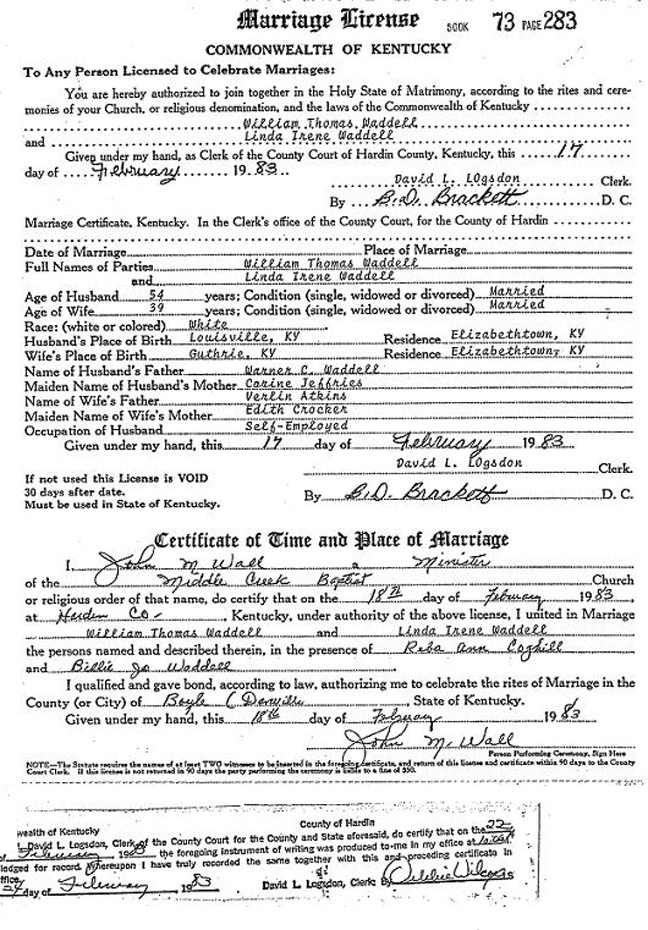 Marriage License BOOK 73 PAGE 283
COMMONWEALTH OF KENTUCKY
To Any Person Licensed to Celebrate Marriages:
You are hereby authorized to join together in the Holy State of Matrimony, according to the rites and cere-
monies of your Church, or religious denomination, and the laws of the Commonwealth of Kentucky
William Thomas Waddell
and Linda Irene Waddell
Given under my hand, as Clerk of the County Court of Hardin County, Kentucky, this 17
day of February 1983
David L. LOgsdon Clerk.
By B.D. Brackett D. C.
Marriage Certificate, Kentucky. In the Clerk's office of the County Court, for the County of Hardin
Date of Marriage Place of Marriage
Full Names of Parties William Thomas Waddell
and Linda Irene Waddell
Age of Husband 54 years; Condition (single, widowed or divorced) Married
Age of Wife 39 years; Condition (single, widowed or divorced) Married
Race: (white or colored) White
Husband's Place of Birth Louisville, KY Residence Elizabethtown, KY
Wife's Place of Birth Guthrie, KY Residence Elizabethtown, KY
Name of Husband's Father Warner C. Waddell
Maiden Name of Husband's Mother Corine Jeffries
Name of Wife's Father Verlin Atkins
Maiden Name of Wife's Mother Edith Crocker
Occupation of Husband Self-Employed
Given under my hand, this 17 day of February 1983
David L. LOgsdon Clerk.
If not used this License is VOID
30 days after date.
Must be used in State of Kentucky.
By B.D. Brackett D. C.
Certificate of Time and Place of Marriage
I, John M Wall a Minister
of the Middle Creek Baptist Church
or religious order of that name, do certify that on the 18th day of February 1983
at Hardin Co-, Kentucky, under authority of the above license, I united in Marriage
William Thomas Waddell and Linda Irene Waddell
the persons named and described therein, in the presence of Reba Ann Coghill
and Billie Jo Waddell
I qualified and gave bond, according to law, authorizing me to celebrate the rites of Marriage in the
County (or City) of Boyle (Danville, State of Kentucky.
Given under my hand, this 18th day of February 1983
John M. Wall
Person Performing Ceremony, Sign Here
NOTE—The Statute requires the names of at least TWO witnesses to be inserted in the foregoing certificate, and return of this license and certificate within 90 days to the County
Court Clerk. If this license is not returned in 90 days the party performing the ceremony is liable to a fine of $50.
wealth of Kentucky County of Hardin
David L. Logsdon, Clerk of the County Court for the County and State aforesaid, do certify that on the 22
of February 1983 the foregoing instrument of writing was produced to me in my office at
ledged for record. Whereupon I have truly recorded the same together with this and preceding certificate in
office.
24 day of February 1983 David L. Logsdon, Clerk By Debbie Wilcox